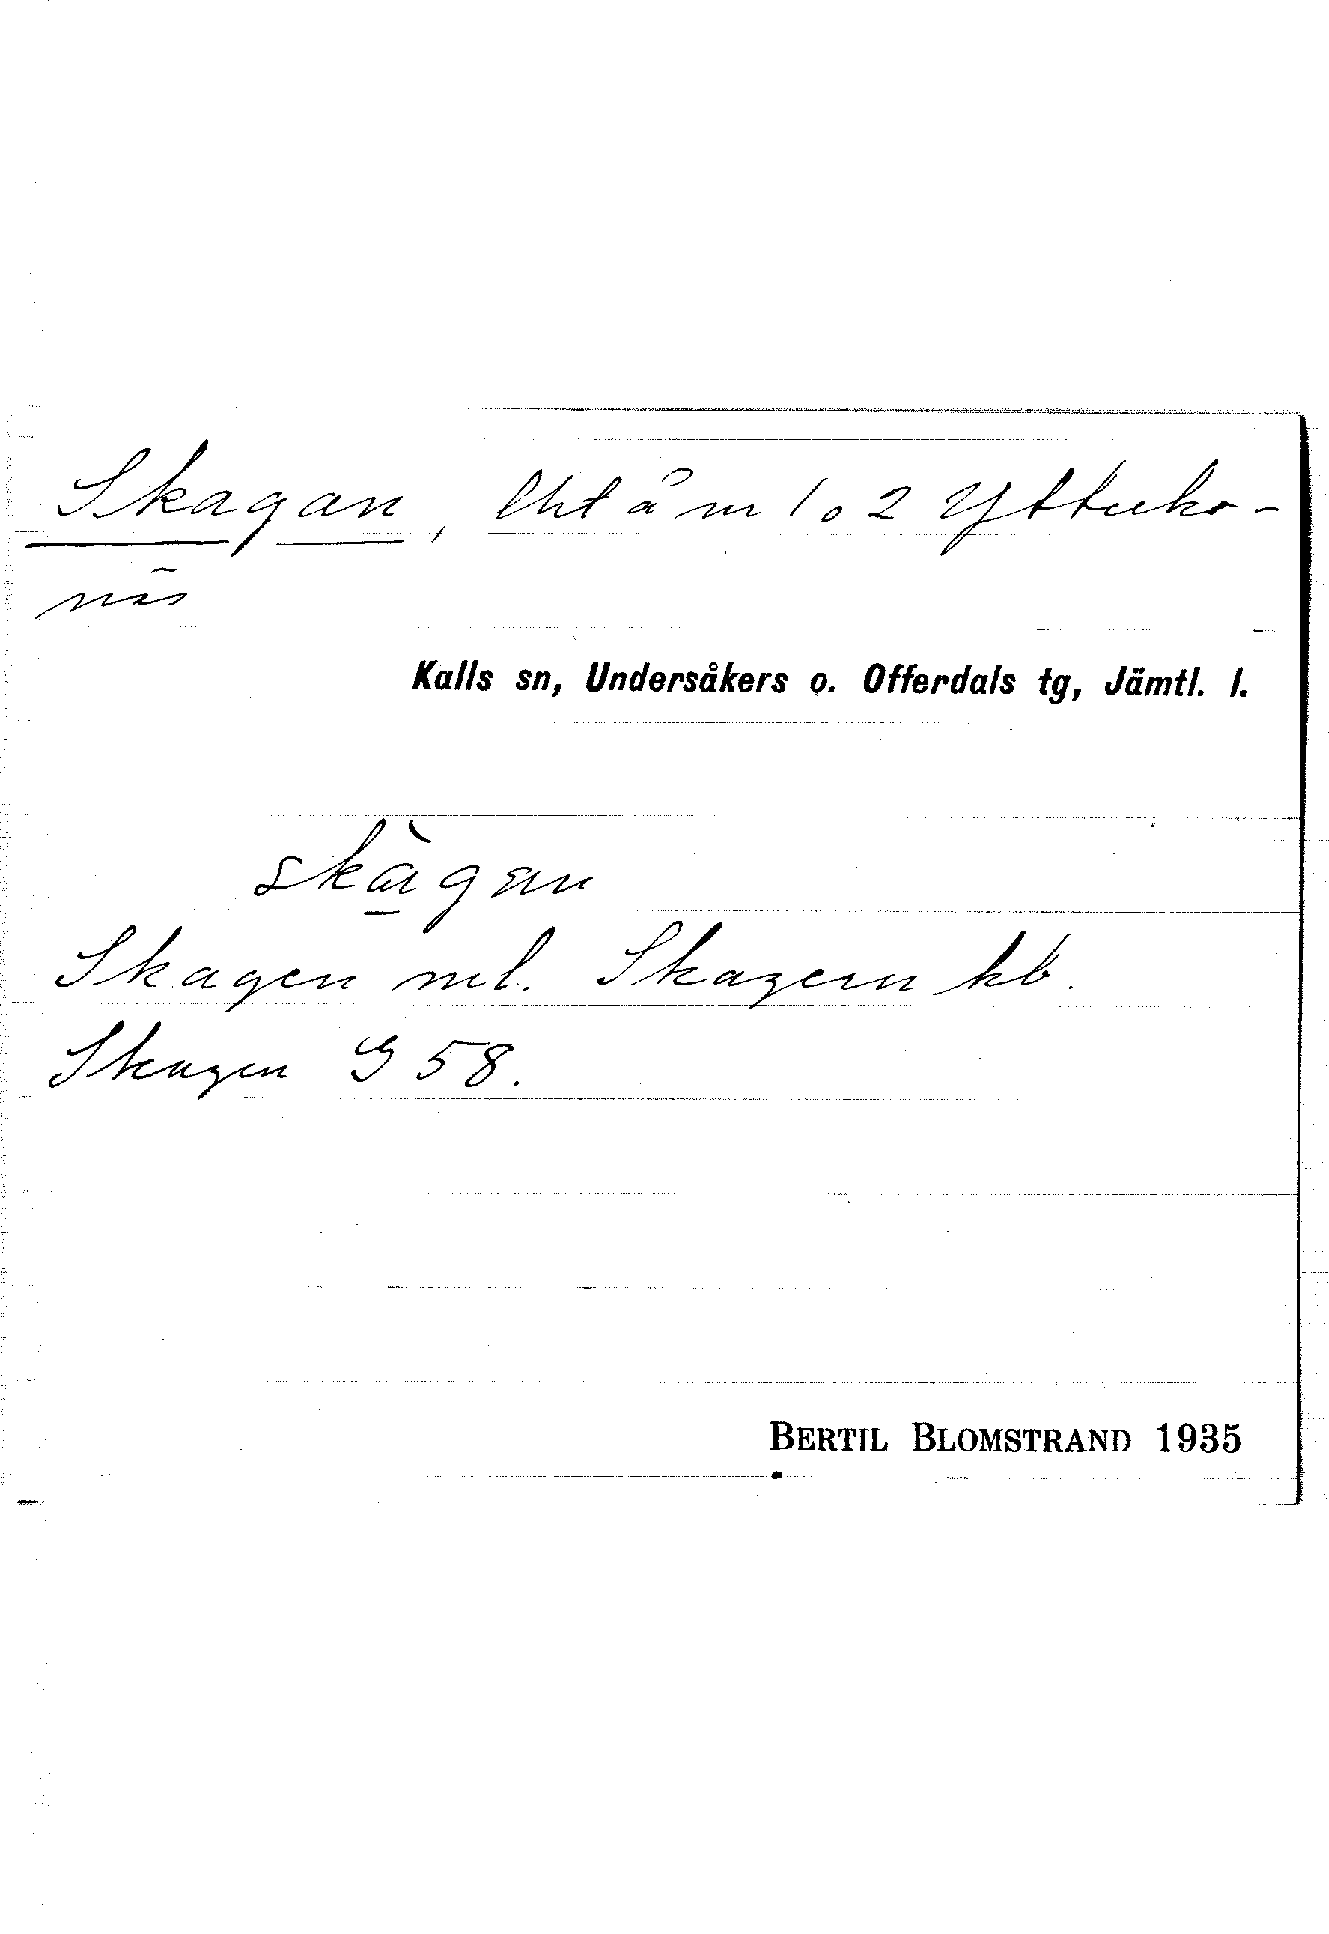 Skagan, lht å nr 1 o 2 Ytterko-
näs
Kalls sn, Undersåkers o. Offerdals tg, Jämtl. l.
skàgan
Skagen ml. Skagern kb.
Skagen G 58.
BERTIL BLOMSTRAND 1935